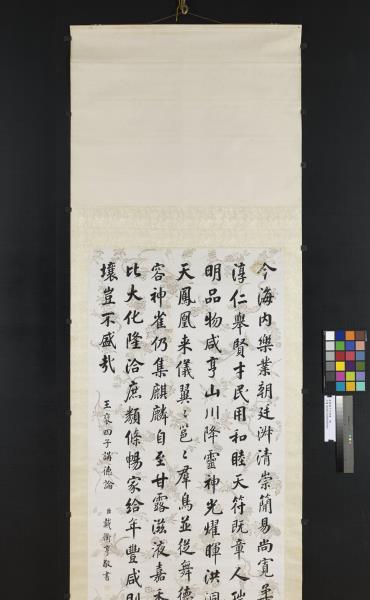 今海内樂業朝廷淑清崇簡易尚寬柔
淳仁舉賢才民用和睦天符既章人瑞
明品物咸亨山川降靈神光燿暉洪洞
天鳳凰来儀翼〻邕〻羣鳥並從舞德
容神雀仍集麒麟自至甘露滋液嘉禾
比大化隆洽庶類條暢家給年豐咸則
壤豈不盛哉
王襃四子講德論
臣戴衢亨敬書